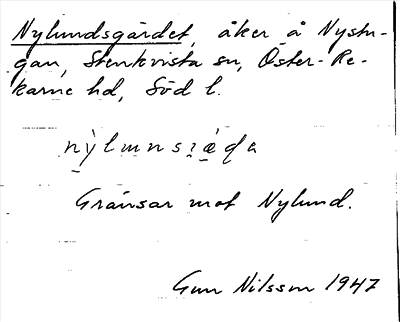 Nylundsgärdet, åker å Nystu-
gan, Stenkvista sn, Öster-Re-
karne hd, Söd l.
Gränsar mot Nylund.
Gun Nilsson 1947